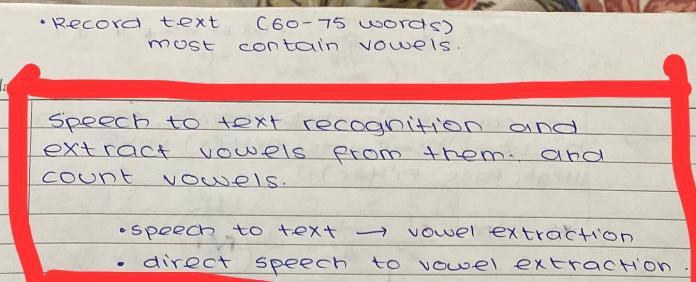 • Record text (60-75 words)
most contain vowels.
speech to text recognition and
extract vowels from them. and
count vowels.
• speech to text → vowel extraction
• direct speech to vowel extraction.